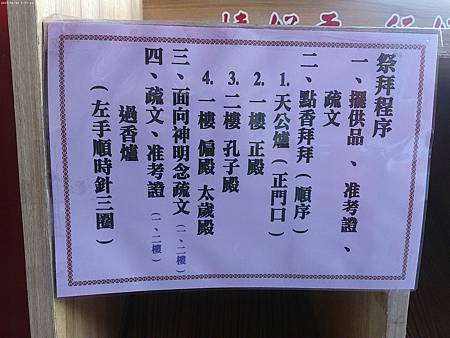 祭拜程序
一、擺供品、准考證、
疏文
二、點香拜拜（順序）
1. 天公爐（正門口）
2. 一樓 正殿
3. 二樓 孔子殿
4. 一樓 偏殿 太歲殿
三、面向神明念疏文（一、二樓）
四、疏文、准考證（一、二樓）
過香爐
（左手順時針三圈）